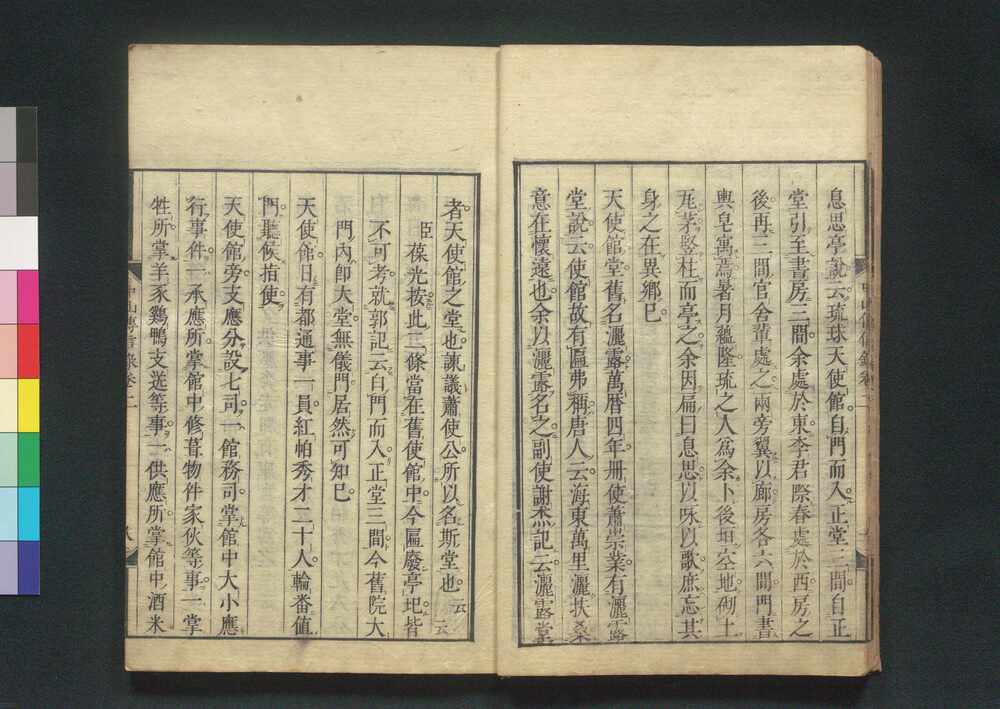 息思亭說云琉球天使館自門而入正堂三間自正
堂引至書房三間余處於東李君際春處於西房之
後再三間官舍輩處之兩旁翼以廊房各六間門書
輿皂寓焉暑月蘊隆琉之人為余卜後垣空地砌土
瓦茅竪柱而亭之余因扁曰息思以咏以歌庶忘其
身之在異鄉已
天使館堂舊名灑露萬曆四年冊使蕭崇業有灑露
堂說云使館故有匾弗稱唐人云海東萬里灑扶桑
意在懷遠也余以灑露名之副使謝杰記云灑露堂
者天使館之堂也諫議蕭使公所以名斯堂也云云
臣葆光按此二條當在舊使館中今匾廢亭圯皆
不可考就郭記云自門而入正堂三間今舊院大
門內卽大堂無儀門居然可知已
天使館日有都通事一員紅帕秀才二十人輪番值
門聽候指使
天使館旁支應分設七司一館務司掌館中大小應
行事件一承應所掌館中修葺物件家伙等事一掌
牲所掌羊豕鷄鴨支送等事一供應所掌館中酒米
中山傳信錄卷二